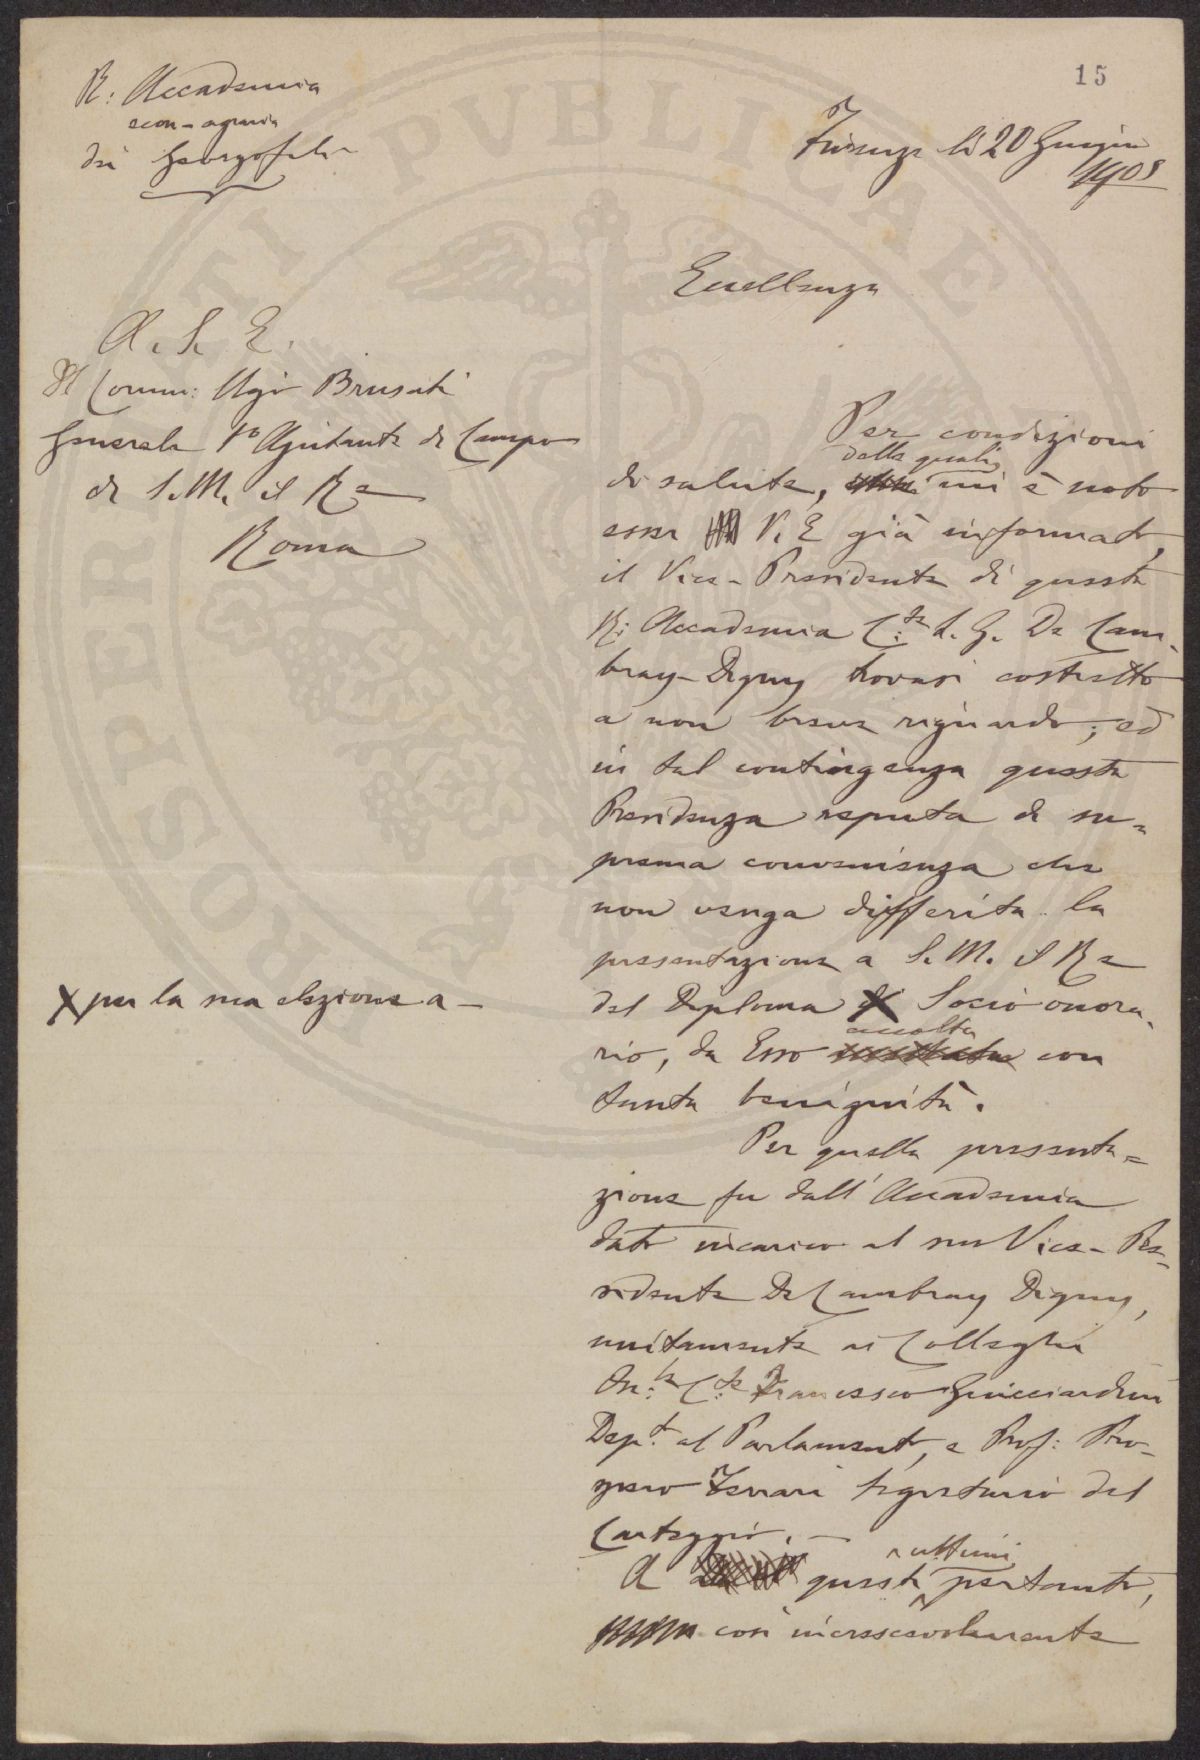 15
R: Accademia
econ-agraria
dei Georgofili
Firenze li 20 Giugno
1908
Eccellenza
A. S. E.
Il Comm: Ugo Brusati
Generale 1º Ajutante di Campo
di S. M. il Re
Roma
Per condizioni
di salute, delle quali mi è noto
esser V. E già informato,
il Vice-Presidente di questa
R: Accademia C:te L. G. De Cam-
bray-Digny trovasi costretto
a non breve riguardo; ed
in tal contingenza questa
Presidenza reputa di su-
prema convenienza che
non venga differita la
presentazione a S. M. il Re
del Diploma X Socio onora-
X per la sua elezione a-
rio, da Esso accolta con
tanta benignità.
Per quella presenta=
zione fu dall'Accademia
dato incarico al suo Vice-Pre-
sidente De Cambray Digny,
unitamente ai Colleghi
C:te Francesco Guicciardini
Dep:t al Parlamento, e Prof: Pro-
spero Ferrari Segretario del
Carteggio.
A questi ultimi pertanto,
così increscevolmente